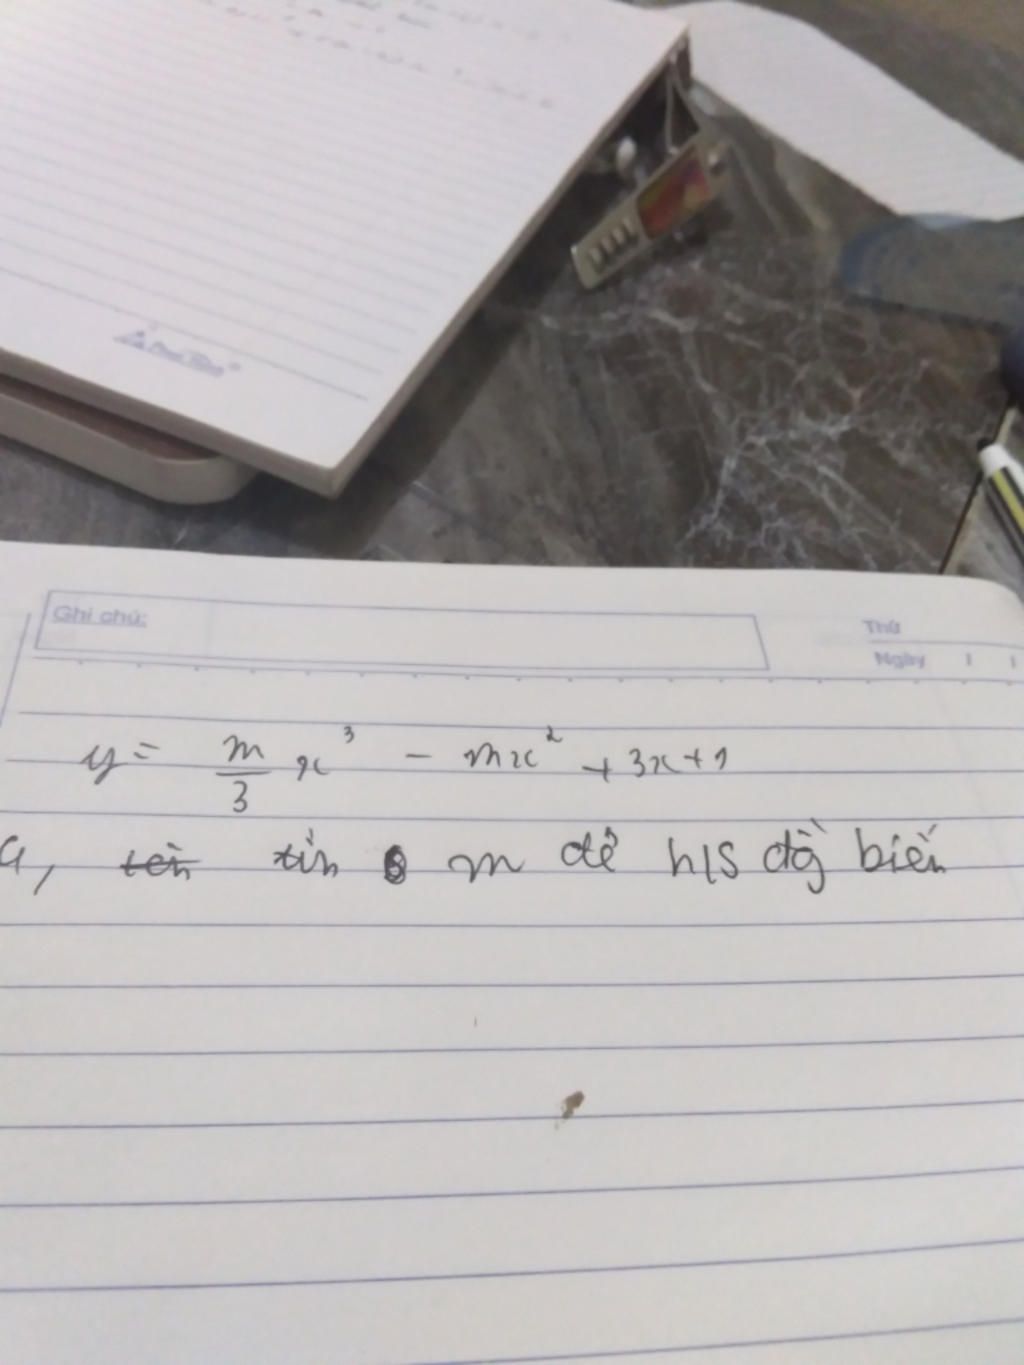 Ghi chú:
Thứ
Ngày / /
y = m/3 x³ - mx² + 3x + 1
a, tìm m để h/s đồ biến